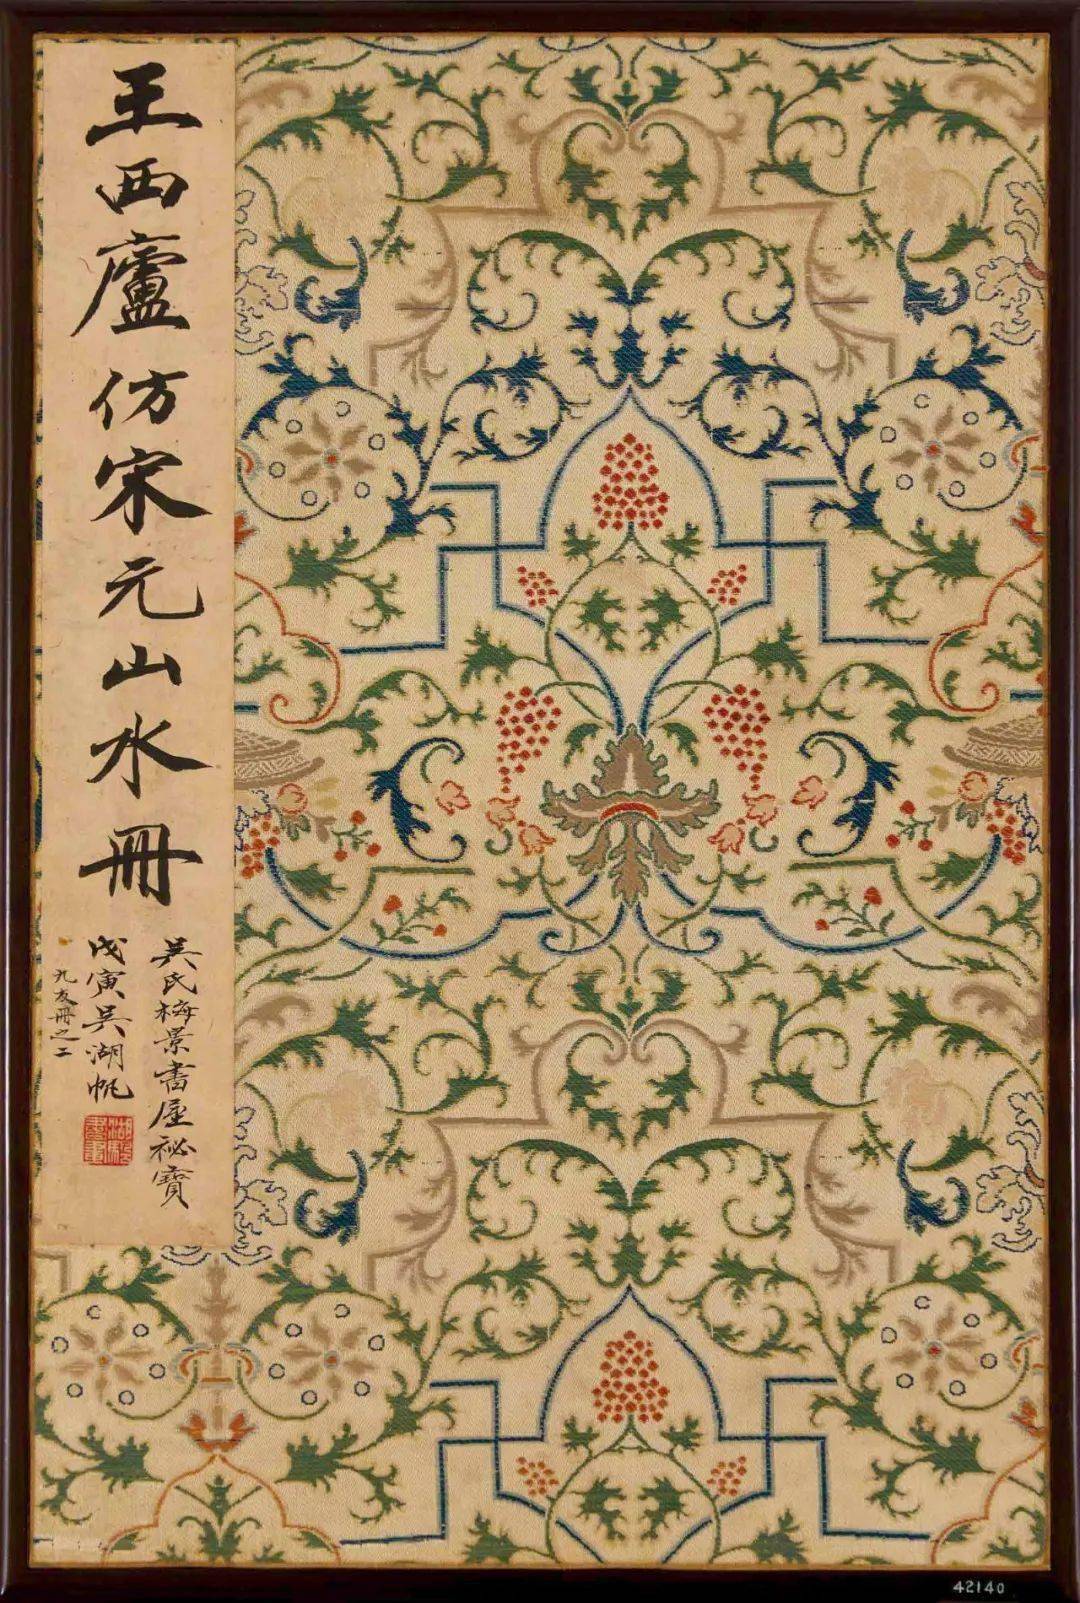 王西廬仿宋元山水冊
吴氏梅景書屋祕寶
戊寅吴湖帆
九友冊之二
42140